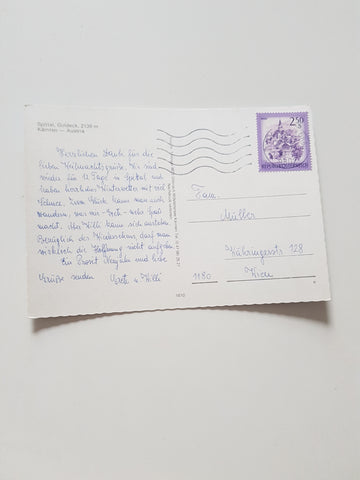 Spittal, Goldeck, 2139 m
Kärnten — Austria
Herzlichen Dank für die
lieben Weihnachtsgrüße. Wir sind
wieder für 12 Tage in Spittal und
haben herrliches Winterwetter mit viel
Schnee. Zum Glück kann man auch
wandern, was mir sehr Spaß
macht. Aber Willi kann sich austoben.
Bezüglich des Wiedersehens darf man
wirklich die Hoffnung nicht aufgeben.
Ein Prosit Neujahr und liebe
Grüße senden Greti u Willi
2.50
REPUBLIK ÖSTERREICH
Fam.
Müller
Währingerstr. 128
1180 Wien